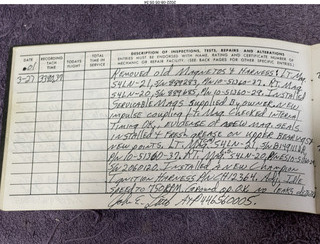 DATE
RECORDING TACH TIME
TODAY'S FLIGHT
TOTAL TIME IN SERVICE
DESCRIPTION OF INSPECTIONS, TESTS, REPAIRS AND ALTERATIONS
ENTRIES MUST BE ENDORSED WITH NAME, RATING AND CERTIFICATE NUMBER OF
MECHANIC OR REPAIR FACILITY. (SEE BACK PAGES FOR OTHER SPECIFIC ENTRIES.)
Removed old Magnetos & Harness: Lt. Mag
S4LN-21, P/N 10-51360-37. Rt. Mag
S4LN-20, P/N 10-51360-29. Installed
Serviceable Mags supplied by owner. New
impulse coupling Lt. Mag. Checked internal
Timing OK, evidence of new mag seals
installed & fresh grease on upper bearings
new points. Lt. Mag. S4LN-21,
P/N 10-51360-37. Rt. Mag. S4LN-20,
S/N 2060120. Installed a new Champion
Ignition Harness
speed to 750 RPM. Ground op. OK no leaks
A+P 446560005.